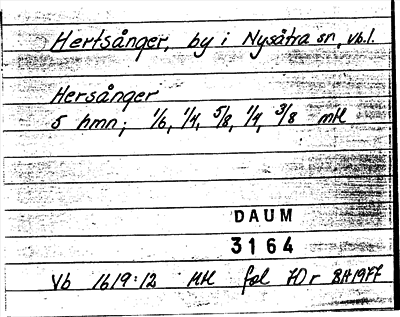 Hertsånger, by i Nysätra sn, Vb.l.
Hersånger
5 hmn; 1/6, 1/4, 5/8, 1/4, 3/8 mtl
DAUM
3164
Vb 1619:12 Mtl fol 70r BH1977